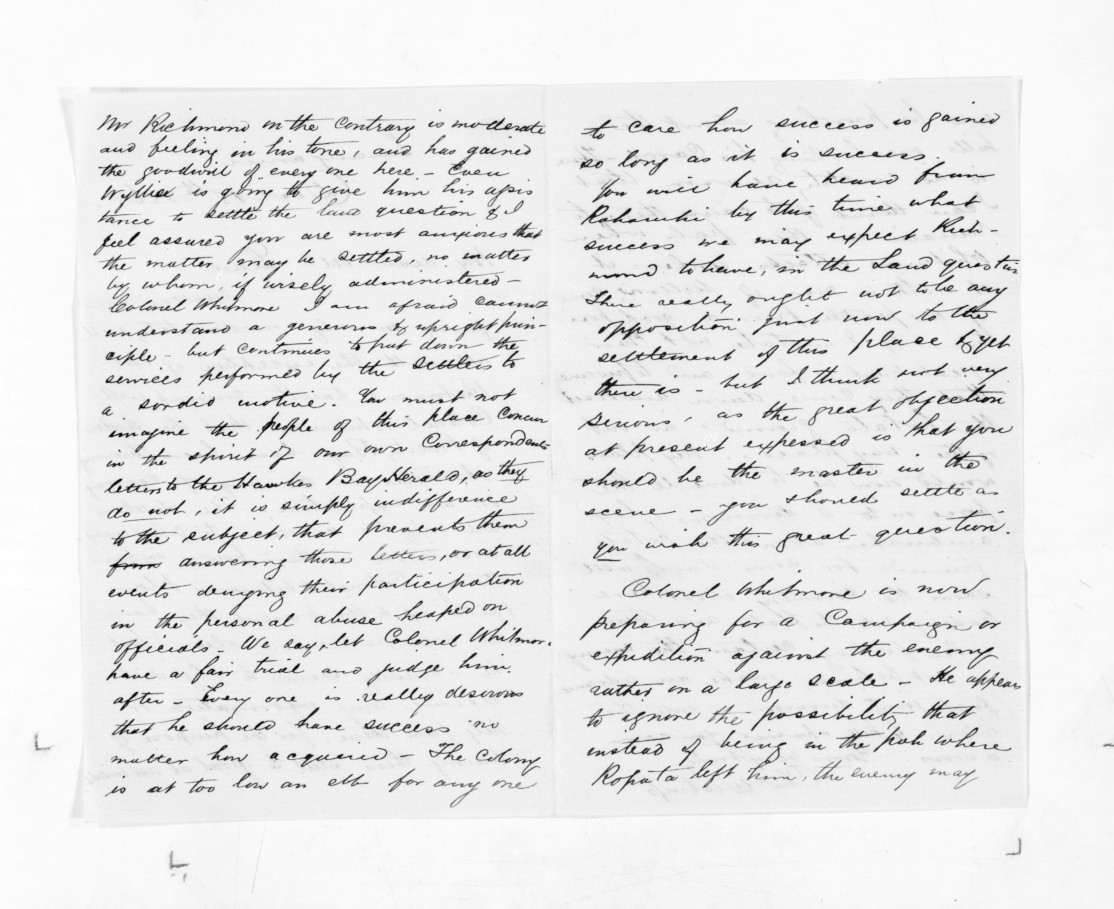 Mr Richmond on the contrary is moderate
and feeling in his tone, and has gained
the goodwill of every one here. - Even
Wyllie is going to give him his assis
tance to settle the land question & I
feel assured you are most anxious that
the matter may be settled, no matter
by whom, if wisely administered -
Colonel Whitmore I am afraid cannot
understand a generous & upright prin-
ciple - but continues to put down the
services performed by the settlers to
a sordid motive. You must not
imagine the people of this place concur
in the spirit of our own Correspondents
letters to the Hawkes Bay Herald, as they
do not, it is simply indifference
to the subject, that prevents them
from answering those letters, or at all
events denying their participation
in the personal abuse heaped on
officials - We say, let Colonel Whitmore
have a fair trial and judge him
after - Every one is really desirous
that he should have success no
matter how acquired - The Colony
is at too low an ebb for any one
to care how success is gained
so long as it is success.
You will have heard from
by this time what
success we may expect Rich-
mond to have, in the Land question
There really ought not to be any
opposition just now to the
settlement of this place & yet
there is - but I think not very
serious, as the great objection
at present expressed is that you
should be the master in the
scene - you should settle as
you wish this great question.
Colonel Whitmore is now
preparing for a Campaign or
expedition against the enemy
rather on a large scale - He appears
to ignore the possibility that
instead of being in the pah where
Ropata left him, the enemy may